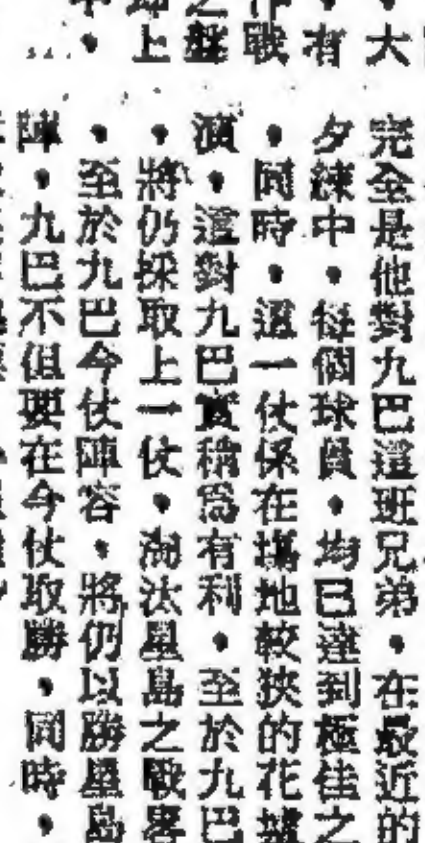 大
有
戰
之盤
上
完全是他對九巴這班兄弟，在最近的
夕練中，每個球員，均已達到極佳之
，同時，這一仗係在場地較狹的花墟
演，這對九巴實稍為有利，至於九巴
，將仍採取上一仗，淘汰星島之戰畧
，至於九巴今仗陣容，將仍以勝星島
陣，九巴不但要在今仗取勝，同時，